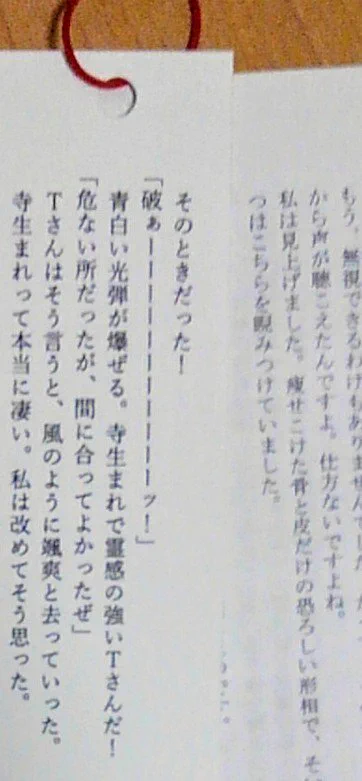 もう、無視できるわけもありません
から声が聴こえたんですよ。仕方ないですよね。
私は見上げました。痩せこけた骨と皮だけの恐ろしい形相で、そ
つはこちらを睨みつけていました。
そのときだった！
「破ぁーーーーーーーーーーッ！」
青白い光弾が爆ぜる。寺生まれで霊感の強いTさんだ！
「危ない所だったが、間に合ってよかったぜ」
Tさんはそう言うと、風のように颯爽と去っていった。
寺生まれって本当に凄い。私は改めてそう思った。